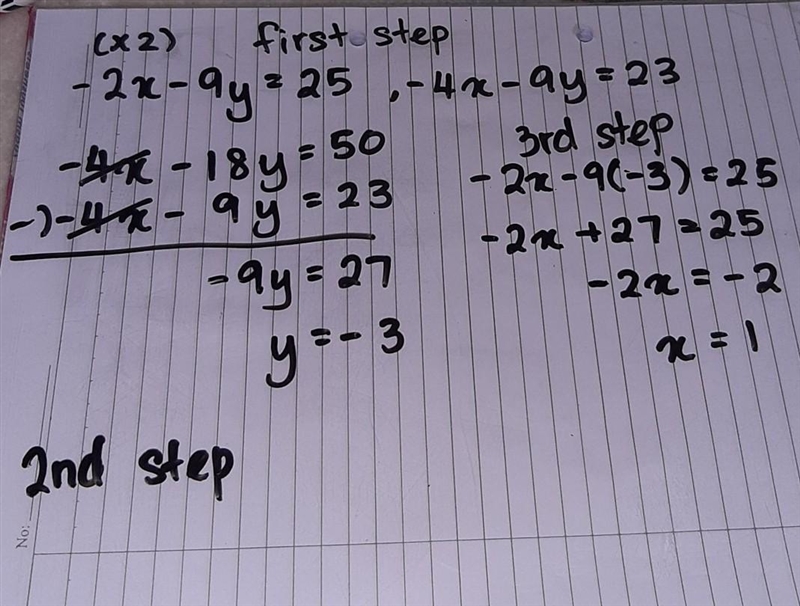 (x2) first step
-2x - 9y = 25 , -4x - 9y = 23
-4x - 18y = 50
-) -4x - 9y = 23
-9y = 27
y = -3
2nd step
3rd step
-2x - 9(-3) = 25
-2x + 27 = 25
-2x = -2
x = 1
No: